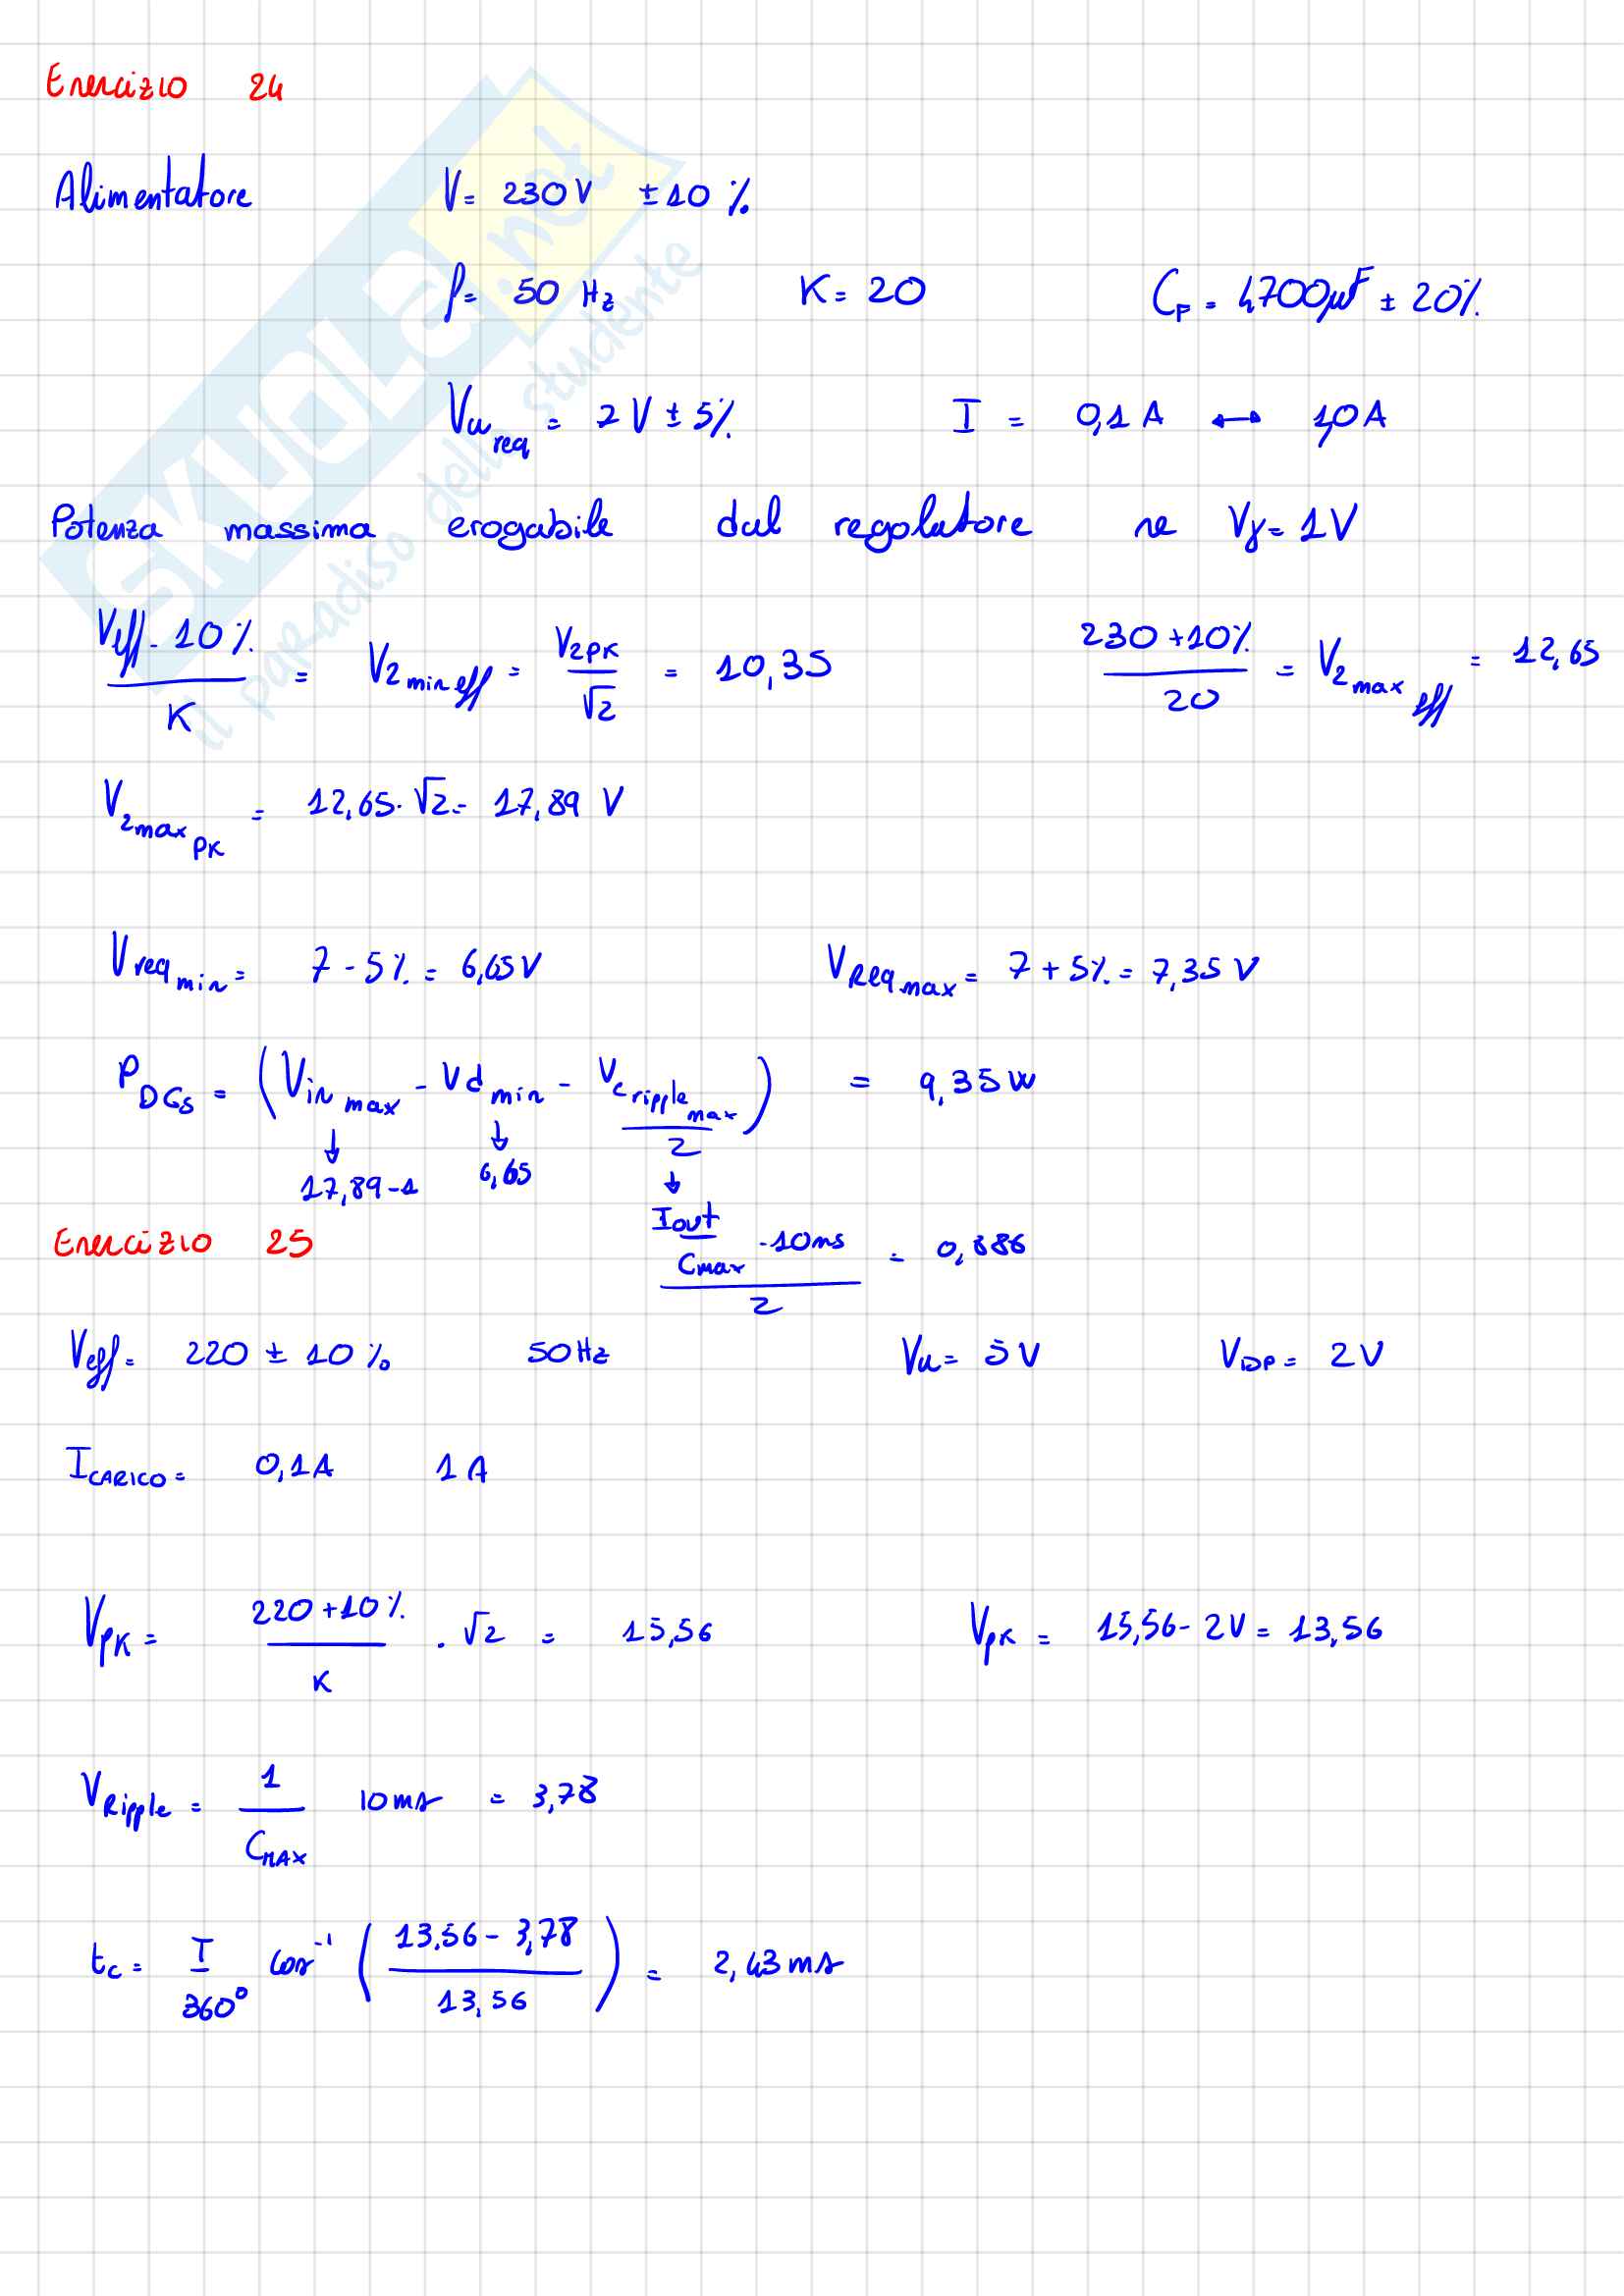 Esercizio 24
Alimentatore V = 230 V ± 10 %
f = 50 Hz K = 20 C_F = 4700 μF ± 20%
Vu_req = 7 V ± 5% I = 0,1 A ↔ 1,0 A
Potenza massima erogabile dal regolatore se Vγ = 1V
(Veff - 10 %) / K = V2 min eff = V2pk / √2 = 10,35 (230 + 10%) / 20 = V2 max eff = 12,65
V2max pk = 12,65 · √2 = 17,89 V
Vreq min = 7 - 5% = 6,65 V VReq max = 7 + 5% = 7,35 V
P_DCs = (Vin max - Vd min - Vc ripple max / 2) = 9,35 W
↓ ↓ ↓
17,89 - 1 6,65
(Iout / Cmax · 10 ms) / 2 = 0,886
Esercizio 25
Veff = 220 ± 10 % 50 Hz Vu = 5 V V_DP = 2 V
I_CARICO = 0,1 A 1 A
Vpk = (220 + 10 %) / K · √2 = 15,56 Vpk = 15,56 - 2V = 13,56
VRipple = 1 / C_MAX 10 ms = 3,78
tc = T / 360° cos⁻¹ ((13,56 - 3,78) / 13,56) = 2,43 ms
SKUOLA.net
il paradiso dello studente